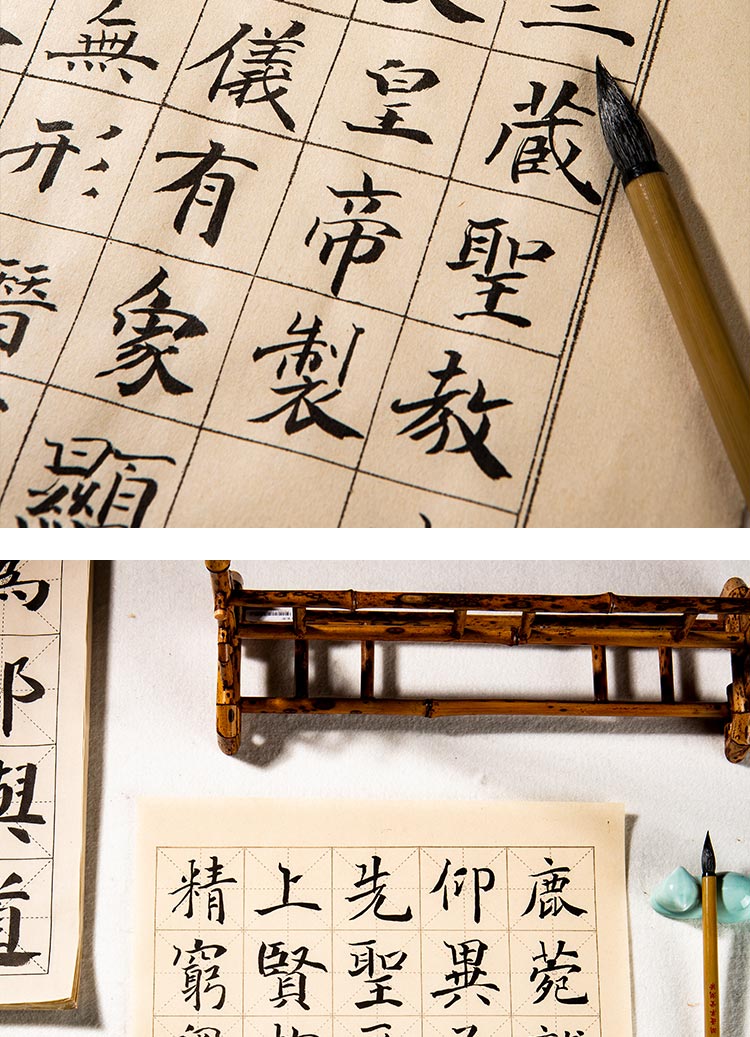 三藏聖教
皇帝製
儀有象顯
無形
與道
鹿菀
仰異
先聖
上賢
精窮